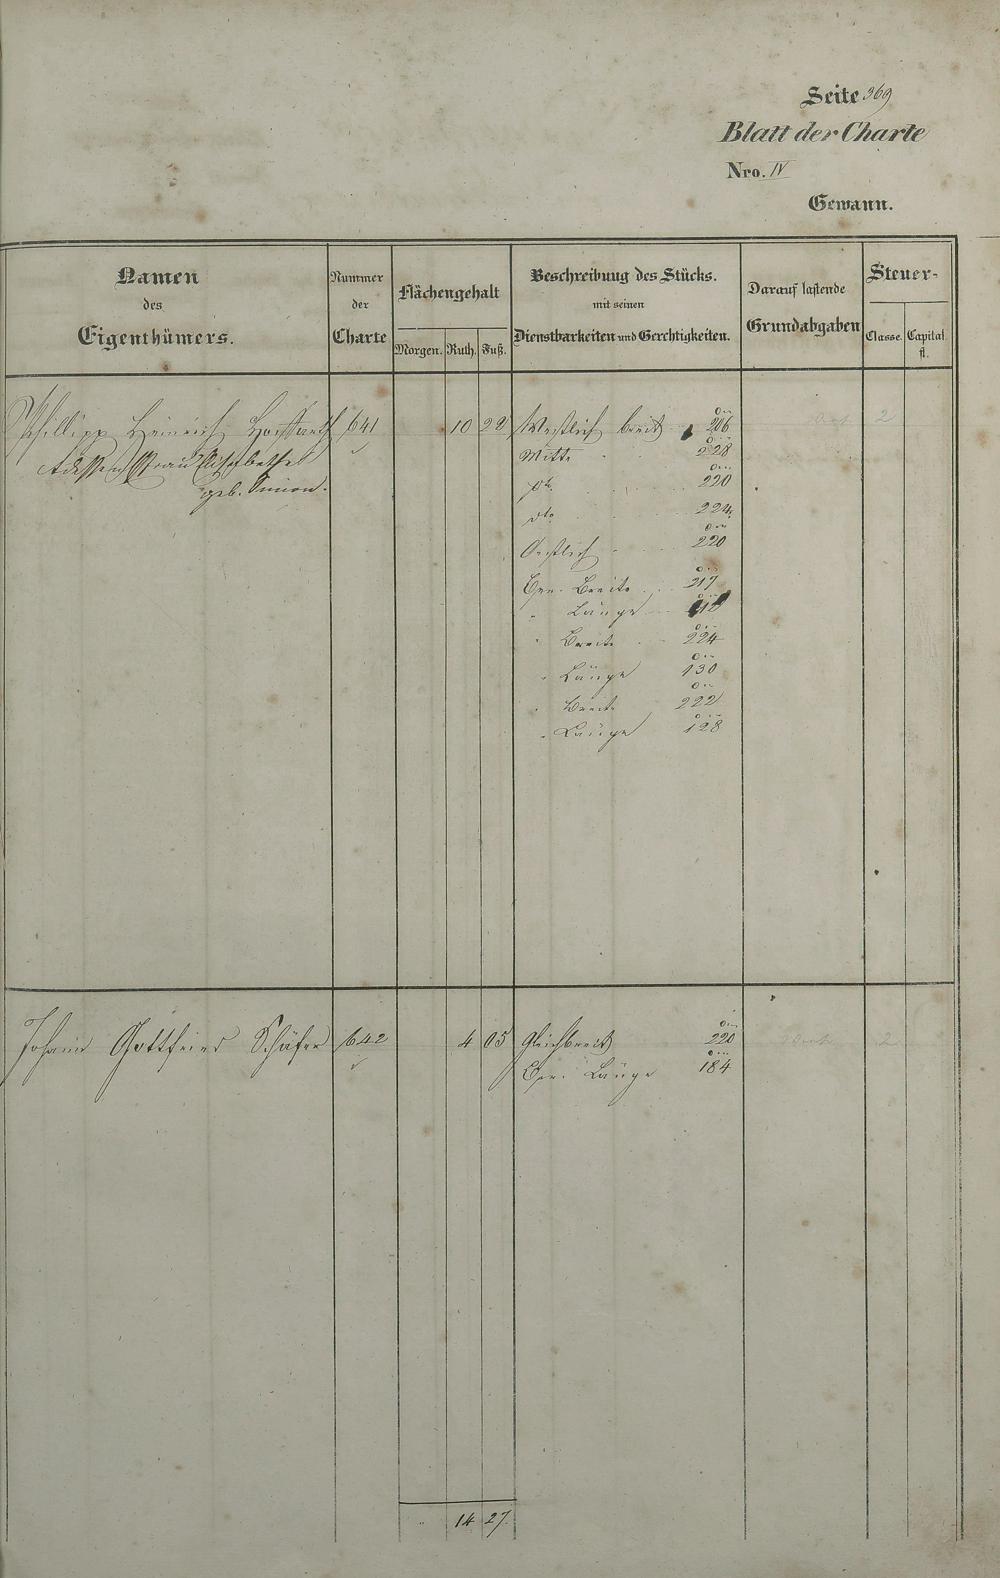 Seite 369
Blatt der Charte
Nro. IV
Gewann.
Namen
des
Eigenthümers.
Nummer
der
Charte
Flächengehalt
Morgen. Ruth. Fuß.
Beschreibung des Stücks.
mit seinen
Dienstbarkeiten und Gerechtigkeiten.
Darauf lastende
Grundabgaben
Steuer-
Classe. Capital
fl.
Phillipp Heinrich 641 10 22 Westlich breit 206
Frau Elisabetha Mitte 228
geb. Simon. dto. 220
dto 224
Oestlich 220
Gew. Breite 217
" Länge
" Breite 224
" Länge 130
" Breite 222
" Länge 128
2
Johann Gottfried Schäfer 642 4 05 Gleichbreit 220
Gew. Länge 184
2
14 27.